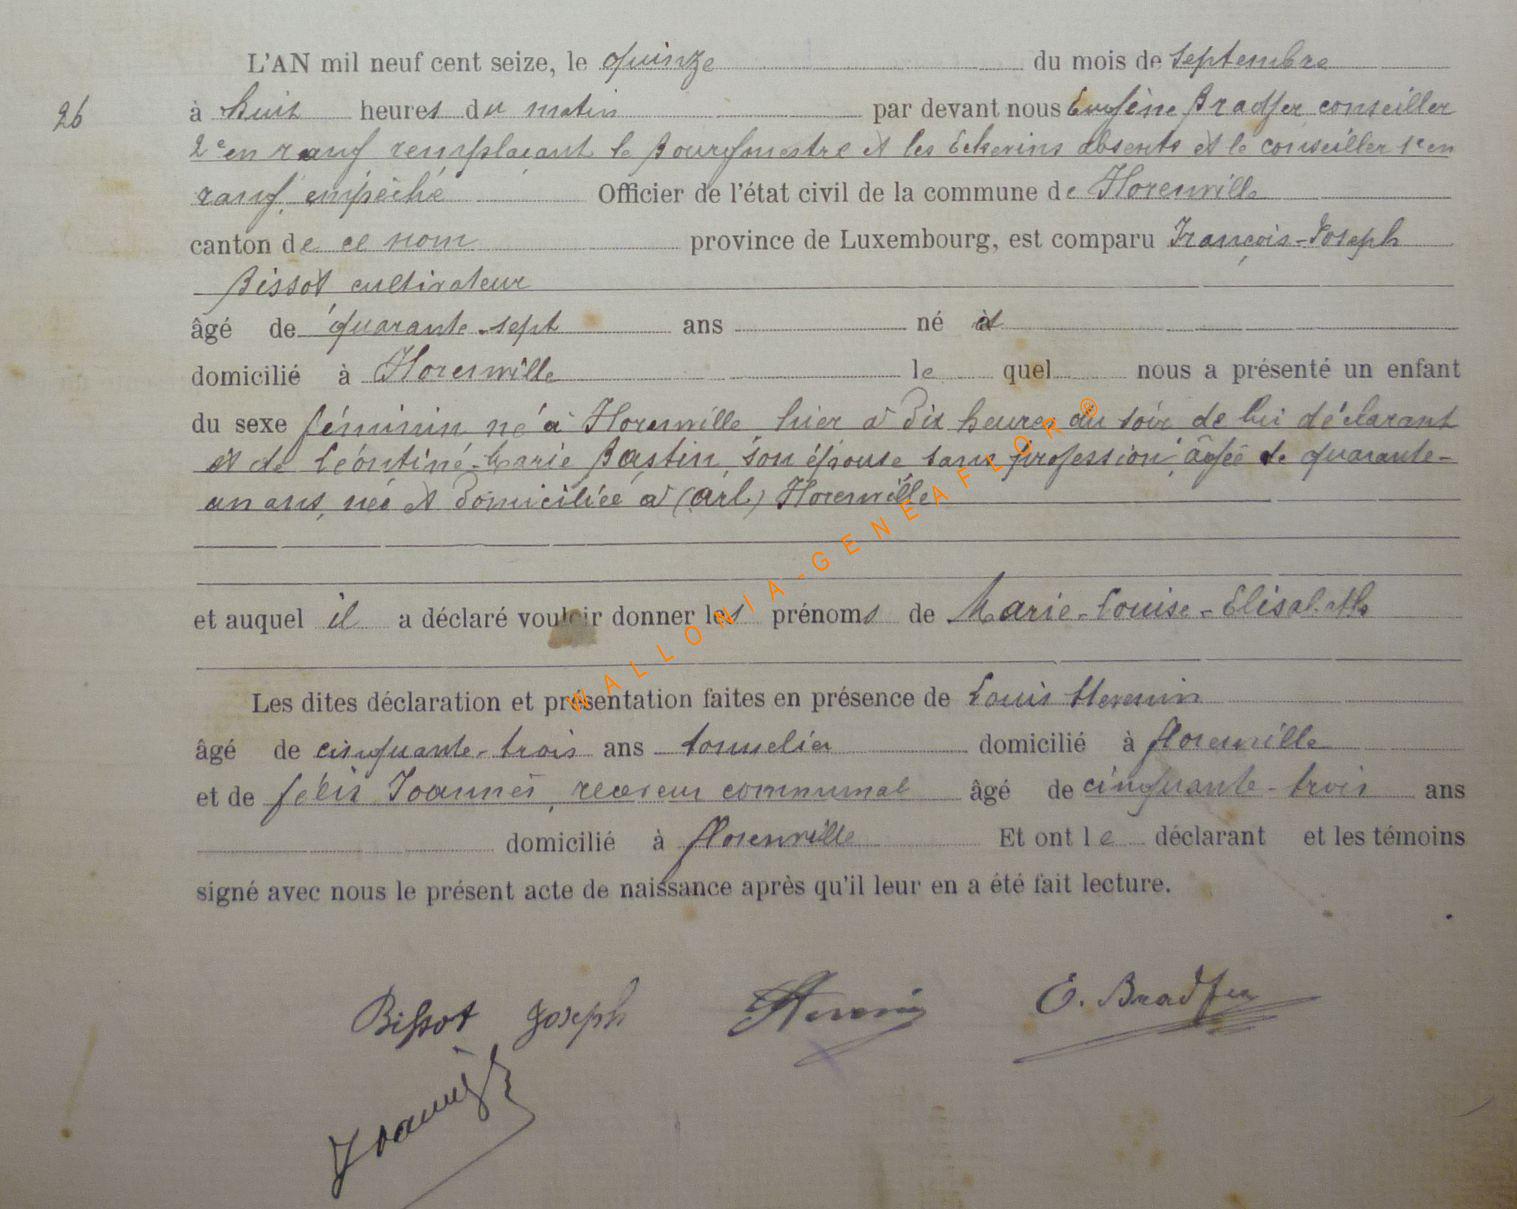 L'AN mil neuf cent seize, le quinze du mois de Septembre
26
à huit heures du matin par devant nous Eugène Bradfer conseiller
2e en rang remplaçant le Bourgmestre et les Echevins absents et le conseiller 1e en
rang empêché Officier de l'état civil de la commune de Florenville
canton de ce nom province de Luxembourg, est comparu François-Joseph
Bissot cultivateur
âgé de quarante-sept ans né et
domicilié à Florenville le quel nous a présenté un enfant
du sexe féminin né à Florenville hier à dix heures du soir de lui déclarant
et de Léontine-Marie Bastin, son épouse sans profession, âgée de quarante-
un ans, née et domiciliée à (arl.) Florenville
et auquel il a déclaré vouloir donner les prénoms de Marie-Louise-Elisabeth
Les dites déclaration et présentation faites en présence de Louis Henin
âgé de cinquante-trois ans tonnelier domicilié à Florenville
et de félix Joannes, receveur communal âgé de cinquante-trois ans
domicilié à florenville Et ont le déclarant et les témoins
signé avec nous le présent acte de naissance après qu'il leur en a été fait lecture.
Bissot Joseph E. Bradfer
WALLONIA-GENEAFLOR®